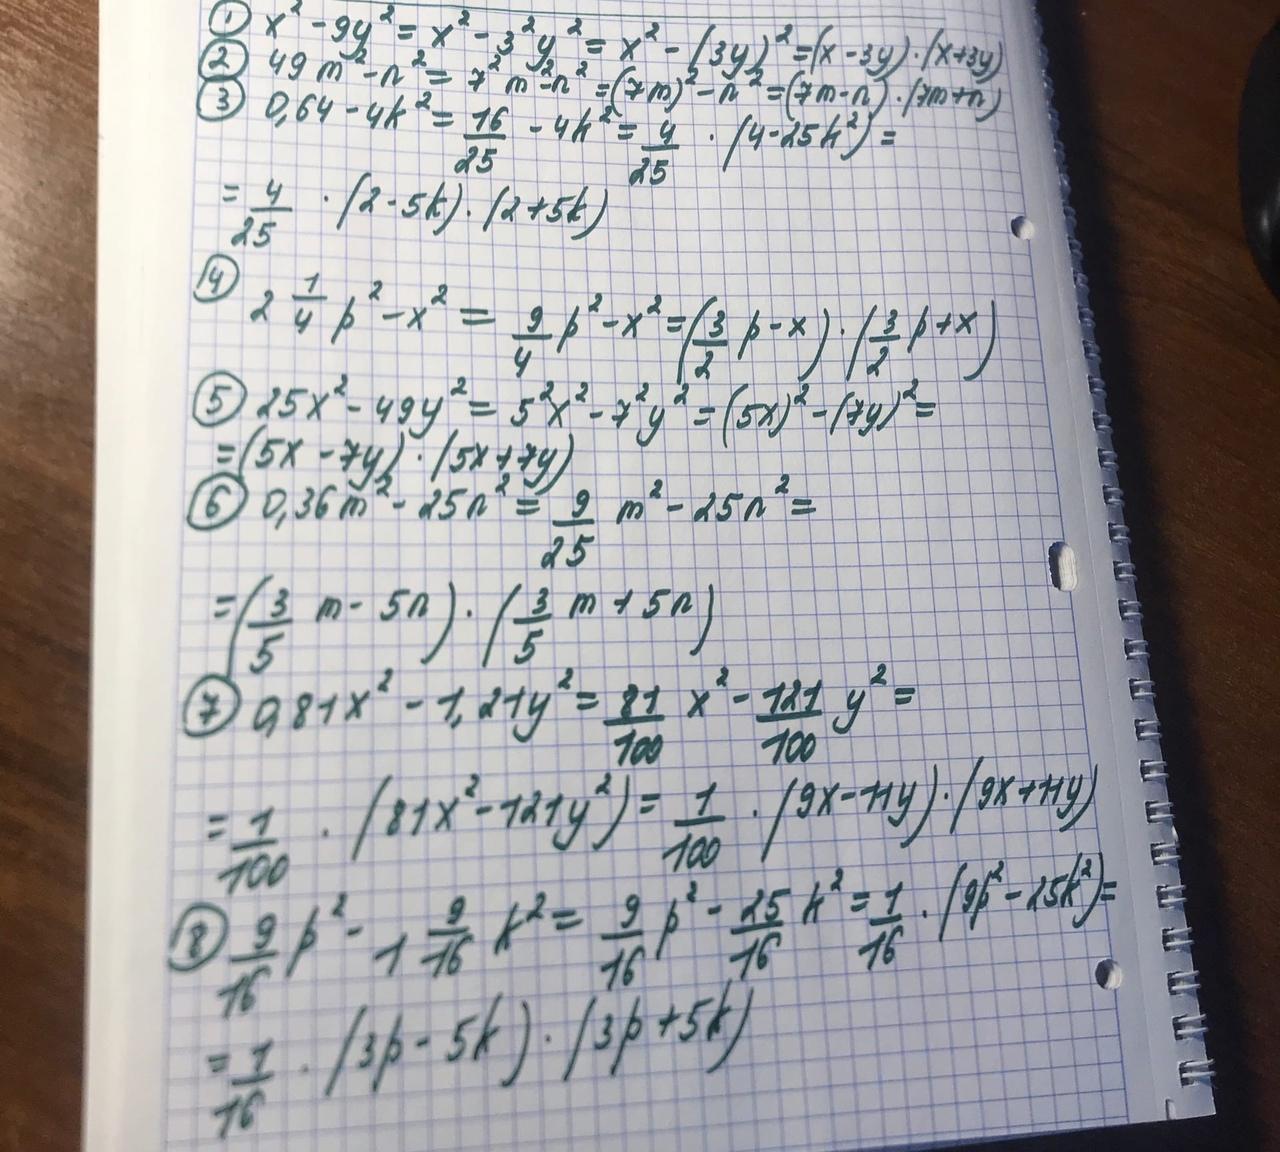 ① x² - 9y² = x² - 3²y² = x² - (3y)² = (x - 3y) · (x + 3y)
② 49m² - n² = 7²m² - n² = (7m)² - n² = (7m - n) · (7m + n)
③ 0,64 - 4k² = 16/25 - 4k² = 4/25 · (4 - 25k²) =
= 4/25 · (2 - 5k) · (2 + 5k)
④ 2 1/4 p² - x² = 9/4 p² - x² = (3/2 p - x) · (3/2 p + x)
⑤ 25x² - 49y² = 5²x² - 7²y² = (5x)² - (7y)² =
= (5x - 7y) · (5x + 7y)
⑥ 0,36m² - 25n² = 9/25 m² - 25n² =
= (3/5 m - 5n) · (3/5 m + 5n)
⑦ 0,81x² - 1,21y² = 81/100 x² - 121/100 y² =
= 1/100 · (81x² - 121y²) = 1/100 · (9x - 11y) · (9x + 11y)
⑧ 9/16 p² - 1 9/16 k² = 9/16 p² - 25/16 k² = 1/16 · (9p² - 25k²) =
= 1/16 · (3p - 5k) · (3p + 5k)